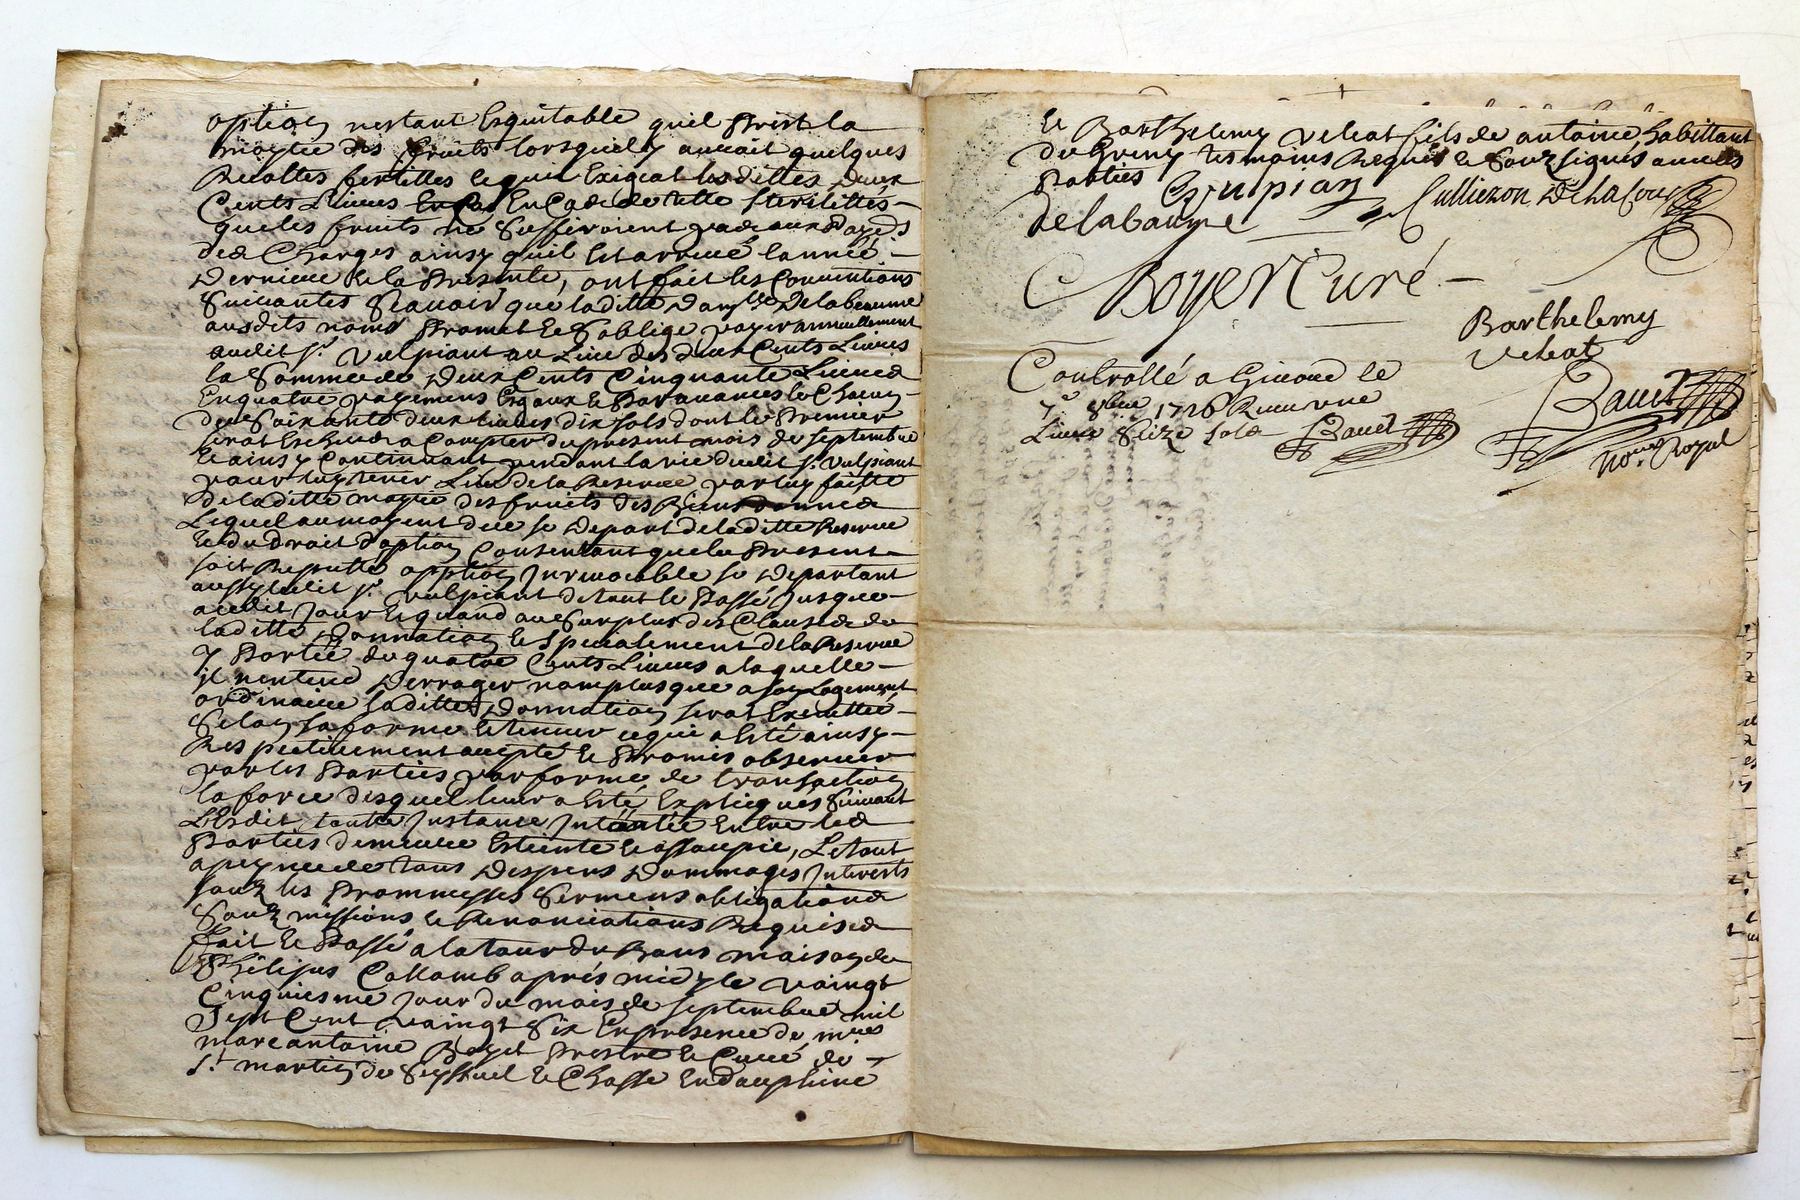 option nestant Esquitable quil Prist la
moytie des fruits lorsquil y auroit quelques
Recoltes fertilles et quil Exigeat lesdittes deux
Cents Livres En Cas de telle sterilittés
que les fruits ne suffiroient pas aux
des Charges ainsy quil Est arrivé lannée
Derniere et la Presente, ont fait les Conventions
Suivantes Scavoir que laditte Dam.lle Delabeaume
ausdits noms Promet et soblige payer annuellement
audit s.r Vulpiant au Lieu des deux Cents Livres
la Somme de Deux Cents Cinquante Livres
En quatre payemens Egaux et Par avances le Chacun
de Soixante deux Livres dix sols dont le Premier
serat Escheu a Compter du present mois de septembre
Et ainsy Continuant pendant la vie dudit s.r Vulpiant
pour luy tenir Lieu de la Reserve par luy faitte
de laditte moytie des fruits des Biens donnés
Lequel au moyent de ce se Depart de laditte Reserve
et du droit doption Consentant que la Presente
soit Reputté option Jrrevocable se Departant
aussy ledit s.r Vulpiant de tout le Passé Jusque
audit Jour Et quand au Surplus des Clauses de
laditte Donnation et specialement de la Reserve
y Portée de quatre Cents Livres a laquelle
il nentend Derroger nom plus que a son Logement
ordinaire laditte Donnation serat Executtée
Selon sa forme et teneur ce qui a Esté ainsy
Respectivement accepté et Promis observer
par les Parties par forme de transaction
la force desquel leur a Esté Expliqués Suivant
LEsdit, toute Jnstance Jntentée Entre les
Parties demeure Esteinte et assoupie, Le tout
a peyne de tous Despens Dommages Jnterests
souz les Prommesses Sermens obligations
Souzmissions et Renonciations Requises
fait et Passé a la tour du Bans maison de
Philipus Collomb aprés midy le vaingt
Cinquiesme Jour du mois de septembre mil
Sept Cent vaingt Six En presence de m.res
marc antoine Boyet Prestre et Curé de
S.t martin de Seyssuel et Chasse En dauphiné
et Barthelemy Veleat fils de antoine habittant
de temoins Requis et Souzsignés avec les
Parties Vulpian
delabaume
Boyer Curé
Barthelemy
Veleat
Controllé a Givord le
7.e 8bre 1726 Receu une
Livre Seize Sols
no.re Royal